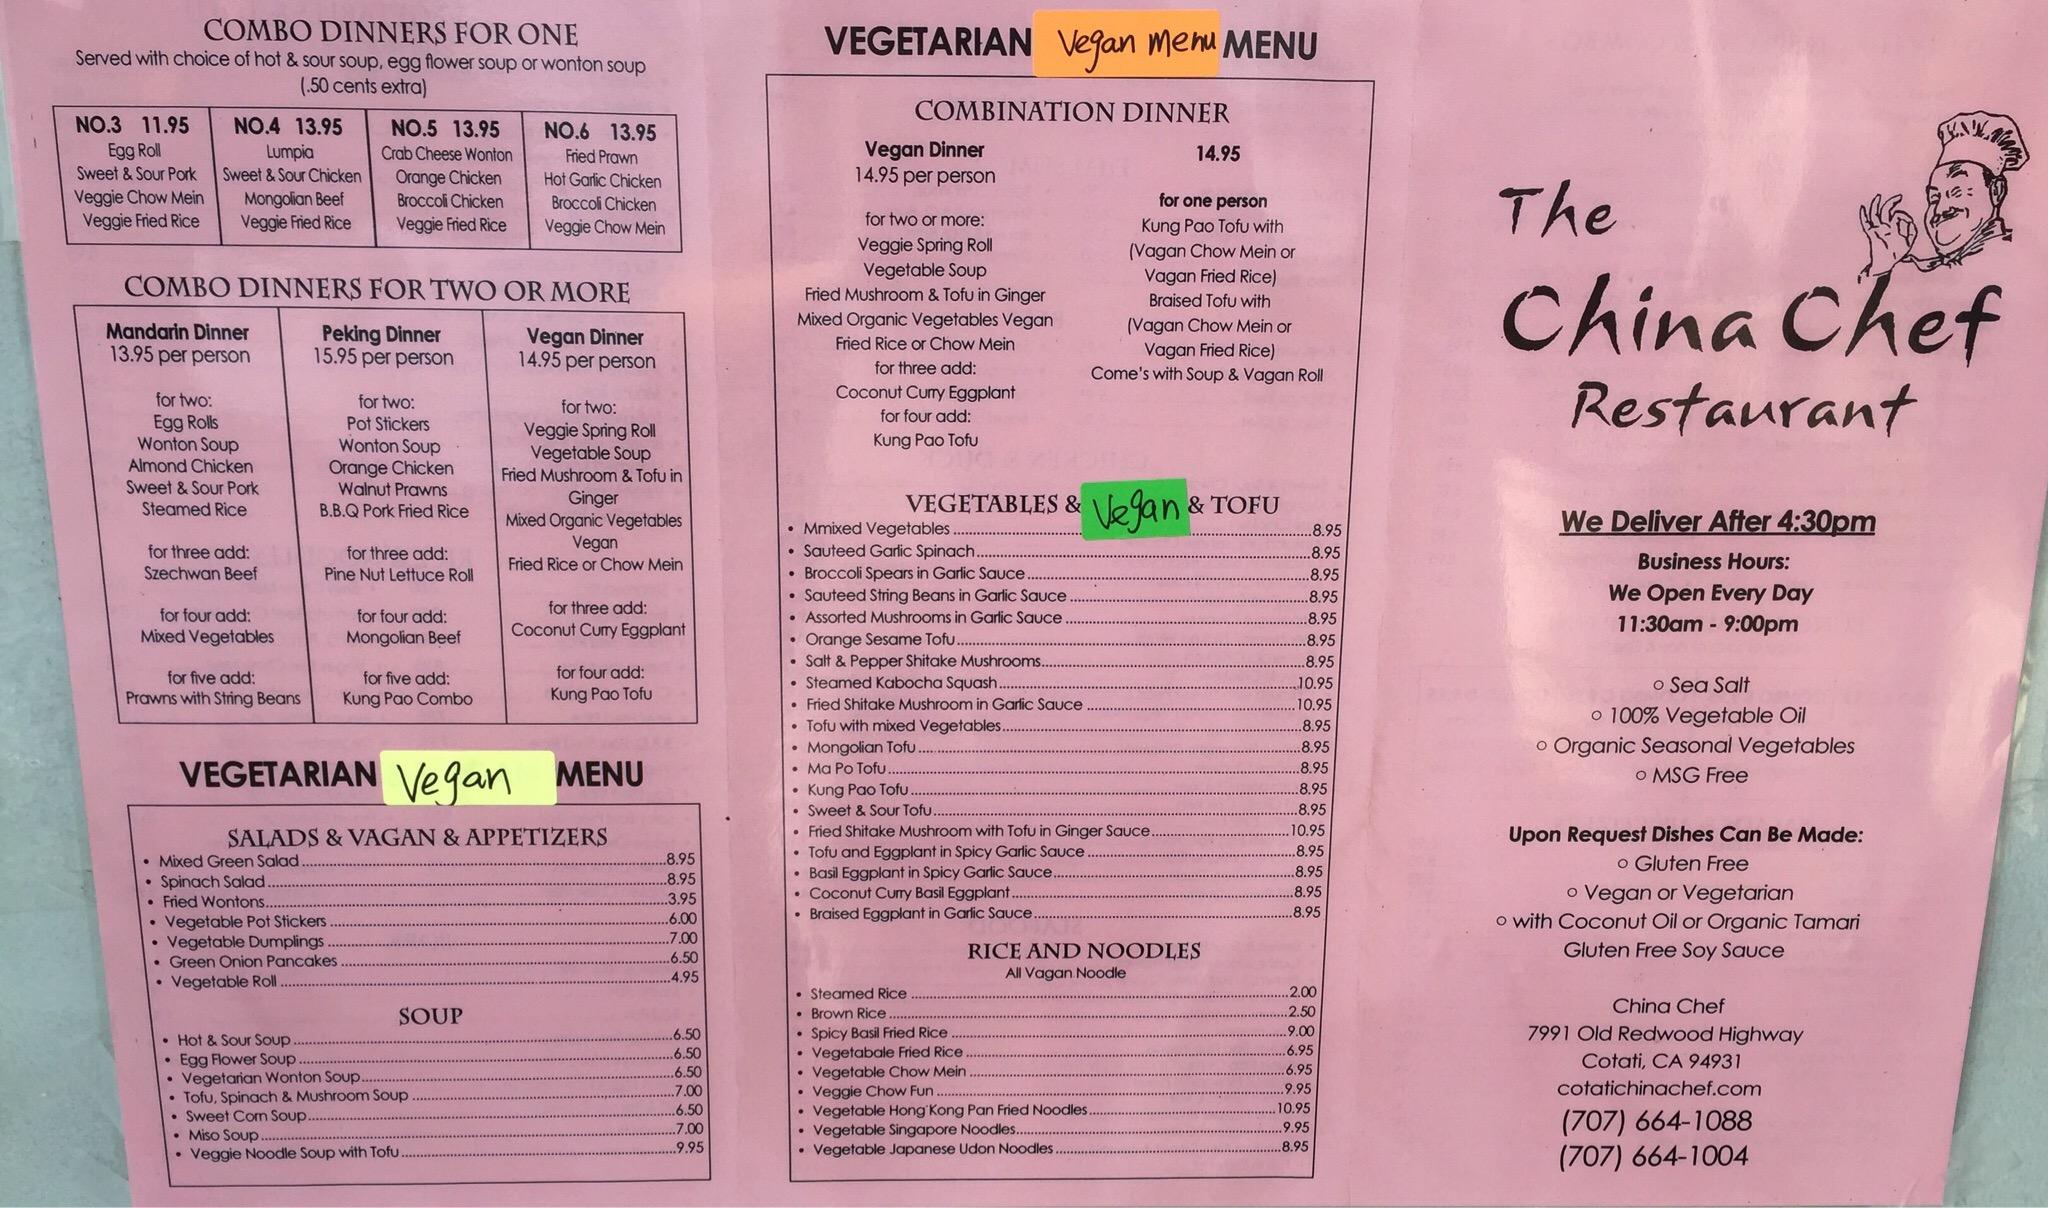 COMBO DINNERS FOR ONE
Served with choice of hot & sour soup, egg flower soup or wonton soup
(.50 cents extra)
NO.3 11.95
Egg Roll
Sweet & Sour Pork
Veggie Chow Mein
Veggie Fried Rice
NO.4 13.95
Lumpia
Sweet & Sour Chicken
Mongolian Beef
Veggie Fried Rice
NO.5 13.95
Crab Cheese Wonton
Orange Chicken
Broccoli Chicken
Veggie Fried Rice
NO.6 13.95
Fried Prawn
Hot Garlic Chicken
Broccoli Chicken
Veggie Chow Mein
COMBO DINNERS FOR TWO OR MORE
Mandarin Dinner
13.95 per person
for two:
Egg Rolls
Wonton Soup
Almond Chicken
Sweet & Sour Pork
Steamed Rice
for three add:
Szechwan Beef
for four add:
Mixed Vegetables
for five add:
Prawns with String Beans
Peking Dinner
15.95 per person
for two:
Pot Stickers
Wonton Soup
Orange Chicken
Walnut Prawns
B.B.Q Pork Fried Rice
for three add:
Pine Nut Lettuce Roll
for four add:
Mongolian Beef
for five add:
Kung Pao Combo
Vegan Dinner
14.95 per person
for two:
Veggie Spring Roll
Vegetable Soup
Fried Mushroom & Tofu in
Ginger
Mixed Organic Vegetables
Vegan
Fried Rice or Chow Mein
for three add:
Coconut Curry Eggplant
for four add:
Kung Pao Tofu
VEGETARIAN Vegan MENU
SALADS & VAGAN & APPETIZERS
• Mixed Green Salad 8.95
• Spinach Salad 8.95
• Fried Wontons 3.95
• Vegetable Pot Stickers 6.00
• Vegetable Dumplings 7.00
• Green Onion Pancakes 6.50
• Vegetable Roll 4.95
SOUP
• Hot & Sour Soup 6.50
• Egg Flower Soup 6.50
• Vegetarian Wonton Soup 6.50
• Tofu, Spinach & Mushroom Soup 7.00
• Sweet Corn Soup 6.50
• Miso Soup 7.00
• Veggie Noodle Soup with Tofu 9.95
VEGETARIAN Vegan menu MENU
COMBINATION DINNER
Vegan Dinner
14.95 per person
for two or more:
Veggie Spring Roll
Vegetable Soup
Fried Mushroom & Tofu in Ginger
Mixed Organic Vegetables Vegan
Fried Rice or Chow Mein
for three add:
Coconut Curry Eggplant
for four add:
Kung Pao Tofu
14.95
for one person
Kung Pao Tofu with
(Vagan Chow Mein or
Vagan Fried Rice)
Braised Tofu with
(Vagan Chow Mein or
Vagan Fried Rice)
Come's with Soup & Vagan Roll
VEGETABLES & Vegan & TOFU
• Mmixed Vegetables 8.95
• Sauteed Garlic Spinach 8.95
• Broccoli Spears in Garlic Sauce 8.95
• Sauteed String Beans in Garlic Sauce 8.95
• Assorted Mushrooms in Garlic Sauce 8.95
• Orange Sesame Tofu 8.95
• Salt & Pepper Shitake Mushrooms 8.95
• Steamed Kabocha Squash 10.95
• Fried Shitake Mushroom in Garlic Sauce 10.95
• Tofu with mixed Vegetables 8.95
• Mongolian Tofu 8.95
• Ma Po Tofu 8.95
• Kung Pao Tofu 8.95
• Sweet & Sour Tofu 8.95
• Fried Shitake Mushroom with Tofu in Ginger Sauce 10.95
• Tofu and Eggplant in Spicy Garlic Sauce 8.95
• Basil Eggplant in Spicy Garlic Sauce 8.95
• Coconut Curry Basil Eggplant 8.95
• Braised Eggplant in Garlic Sauce 8.95
RICE AND NOODLES
All Vagan Noodle
• Steamed Rice 2.00
• Brown Rice 2.50
• Spicy Basil Fried Rice 9.00
• Vegetabale Fried Rice 6.95
• Vegetable Chow Mein 6.95
• Veggie Chow Fun 9.95
• Vegetable Hong Kong Pan Fried Noodles 10.95
• Vegetable Singapore Noodles 9.95
• Vegetable Japanese Udon Noodles 8.95
The
China Chef
Restaurant
We Deliver After 4:30pm
Business Hours:
We Open Every Day
11:30am - 9:00pm
○ Sea Salt
○ 100% Vegetable Oil
○ Organic Seasonal Vegetables
○ MSG Free
Upon Request Dishes Can Be Made:
○ Gluten Free
○ Vegan or Vegetarian
○ with Coconut Oil or Organic Tamari
Gluten Free Soy Sauce
China Chef
7991 Old Redwood Highway
Cotati, CA 94931
cotatichinachef.com
(707) 664-1088
(707) 664-1004